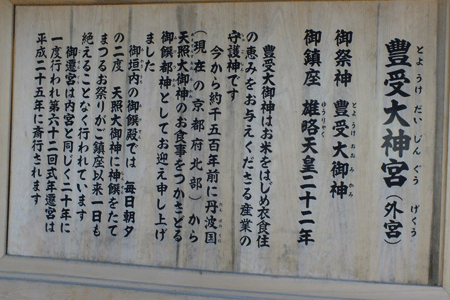 豐受大神宮(外宮)
とようけだいじんぐう げくう
御祭神 豐受大御神
とようけおおみかみ
御鎮座 雄略天皇二十二年
ゆうりゃく
豐受大御神はお米をはじめ衣食住
の恵みをお与えくださる産業の
守護神です
今から約千五百年前に丹波国
(現在の京都府北部)から
天照大御神のお食事をつかさどる
御饌都神としてお迎え申し上げ
ました
御垣内の御饌殿では 毎日朝夕
の二度 天照大御神に神饌をたて
まつるお祭りがご鎮座以来一日も
絶えることなく行われています
御遷宮は内宮と同じく二十年に
一度行われ第六十二回式年遷宮は
平成二十五年に斎行されます